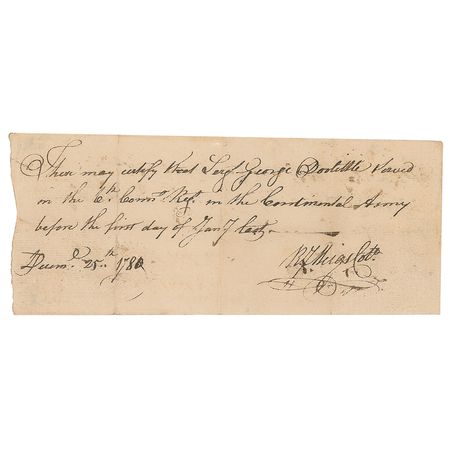 These may certify that Serjt. George Doolittle Served
in the 6th. Connt. Regt. in the Continental Army
before the first day of Jany last.
Decemr. 25th. 1780
R J Meigs Colo.